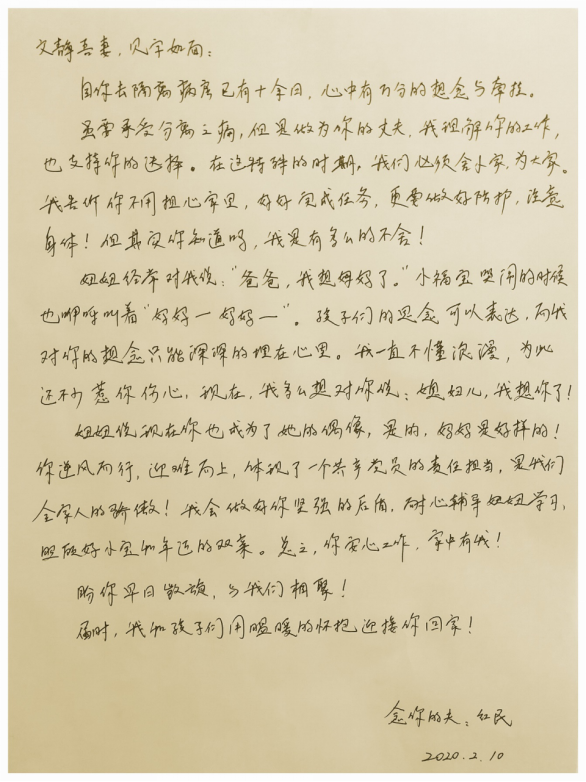 文静吾妻，见字如面：
自你去隔离病房已有十余日，心中有万分的想念与牵挂。
虽需承受分离之痛，但是做为你的丈夫，我理解你的工作，
也支持你的选择。在这特殊的时期，我们必须舍小家，为大家。
我告诉你不用担心家里，好好完成任务，更要做好防护，注意
身体！但其实你知道吗，我是有多么的不舍！
妞妞经常对我说："爸爸，我想妈妈了。"小福宝哭闹的时候
也咿呀叫着"妈妈一妈妈一"。孩子们的思念可以表达，而我
对你的想念只能深深的埋在心里。我一直不懂浪漫，为此
还不少惹你伤心，现在，我多么想对你说：媳妇儿，我想你了！
妞妞说现在你也成为了她的偶像，是的，妈妈是好样的！
你逆风而行，迎难而上，体现了一个共产党员的责任担当，是我们
全家人的骄傲！我会做好你坚强的后盾，耐心辅导妞妞学习，
照顾好小宝和年迈的双亲。总之，你安心工作，家中有我！
盼你早日凯旋，与我们相聚！
届时，我和孩子们用温暖的怀抱迎接你回家！
念你的夫：红民
2020.2.10